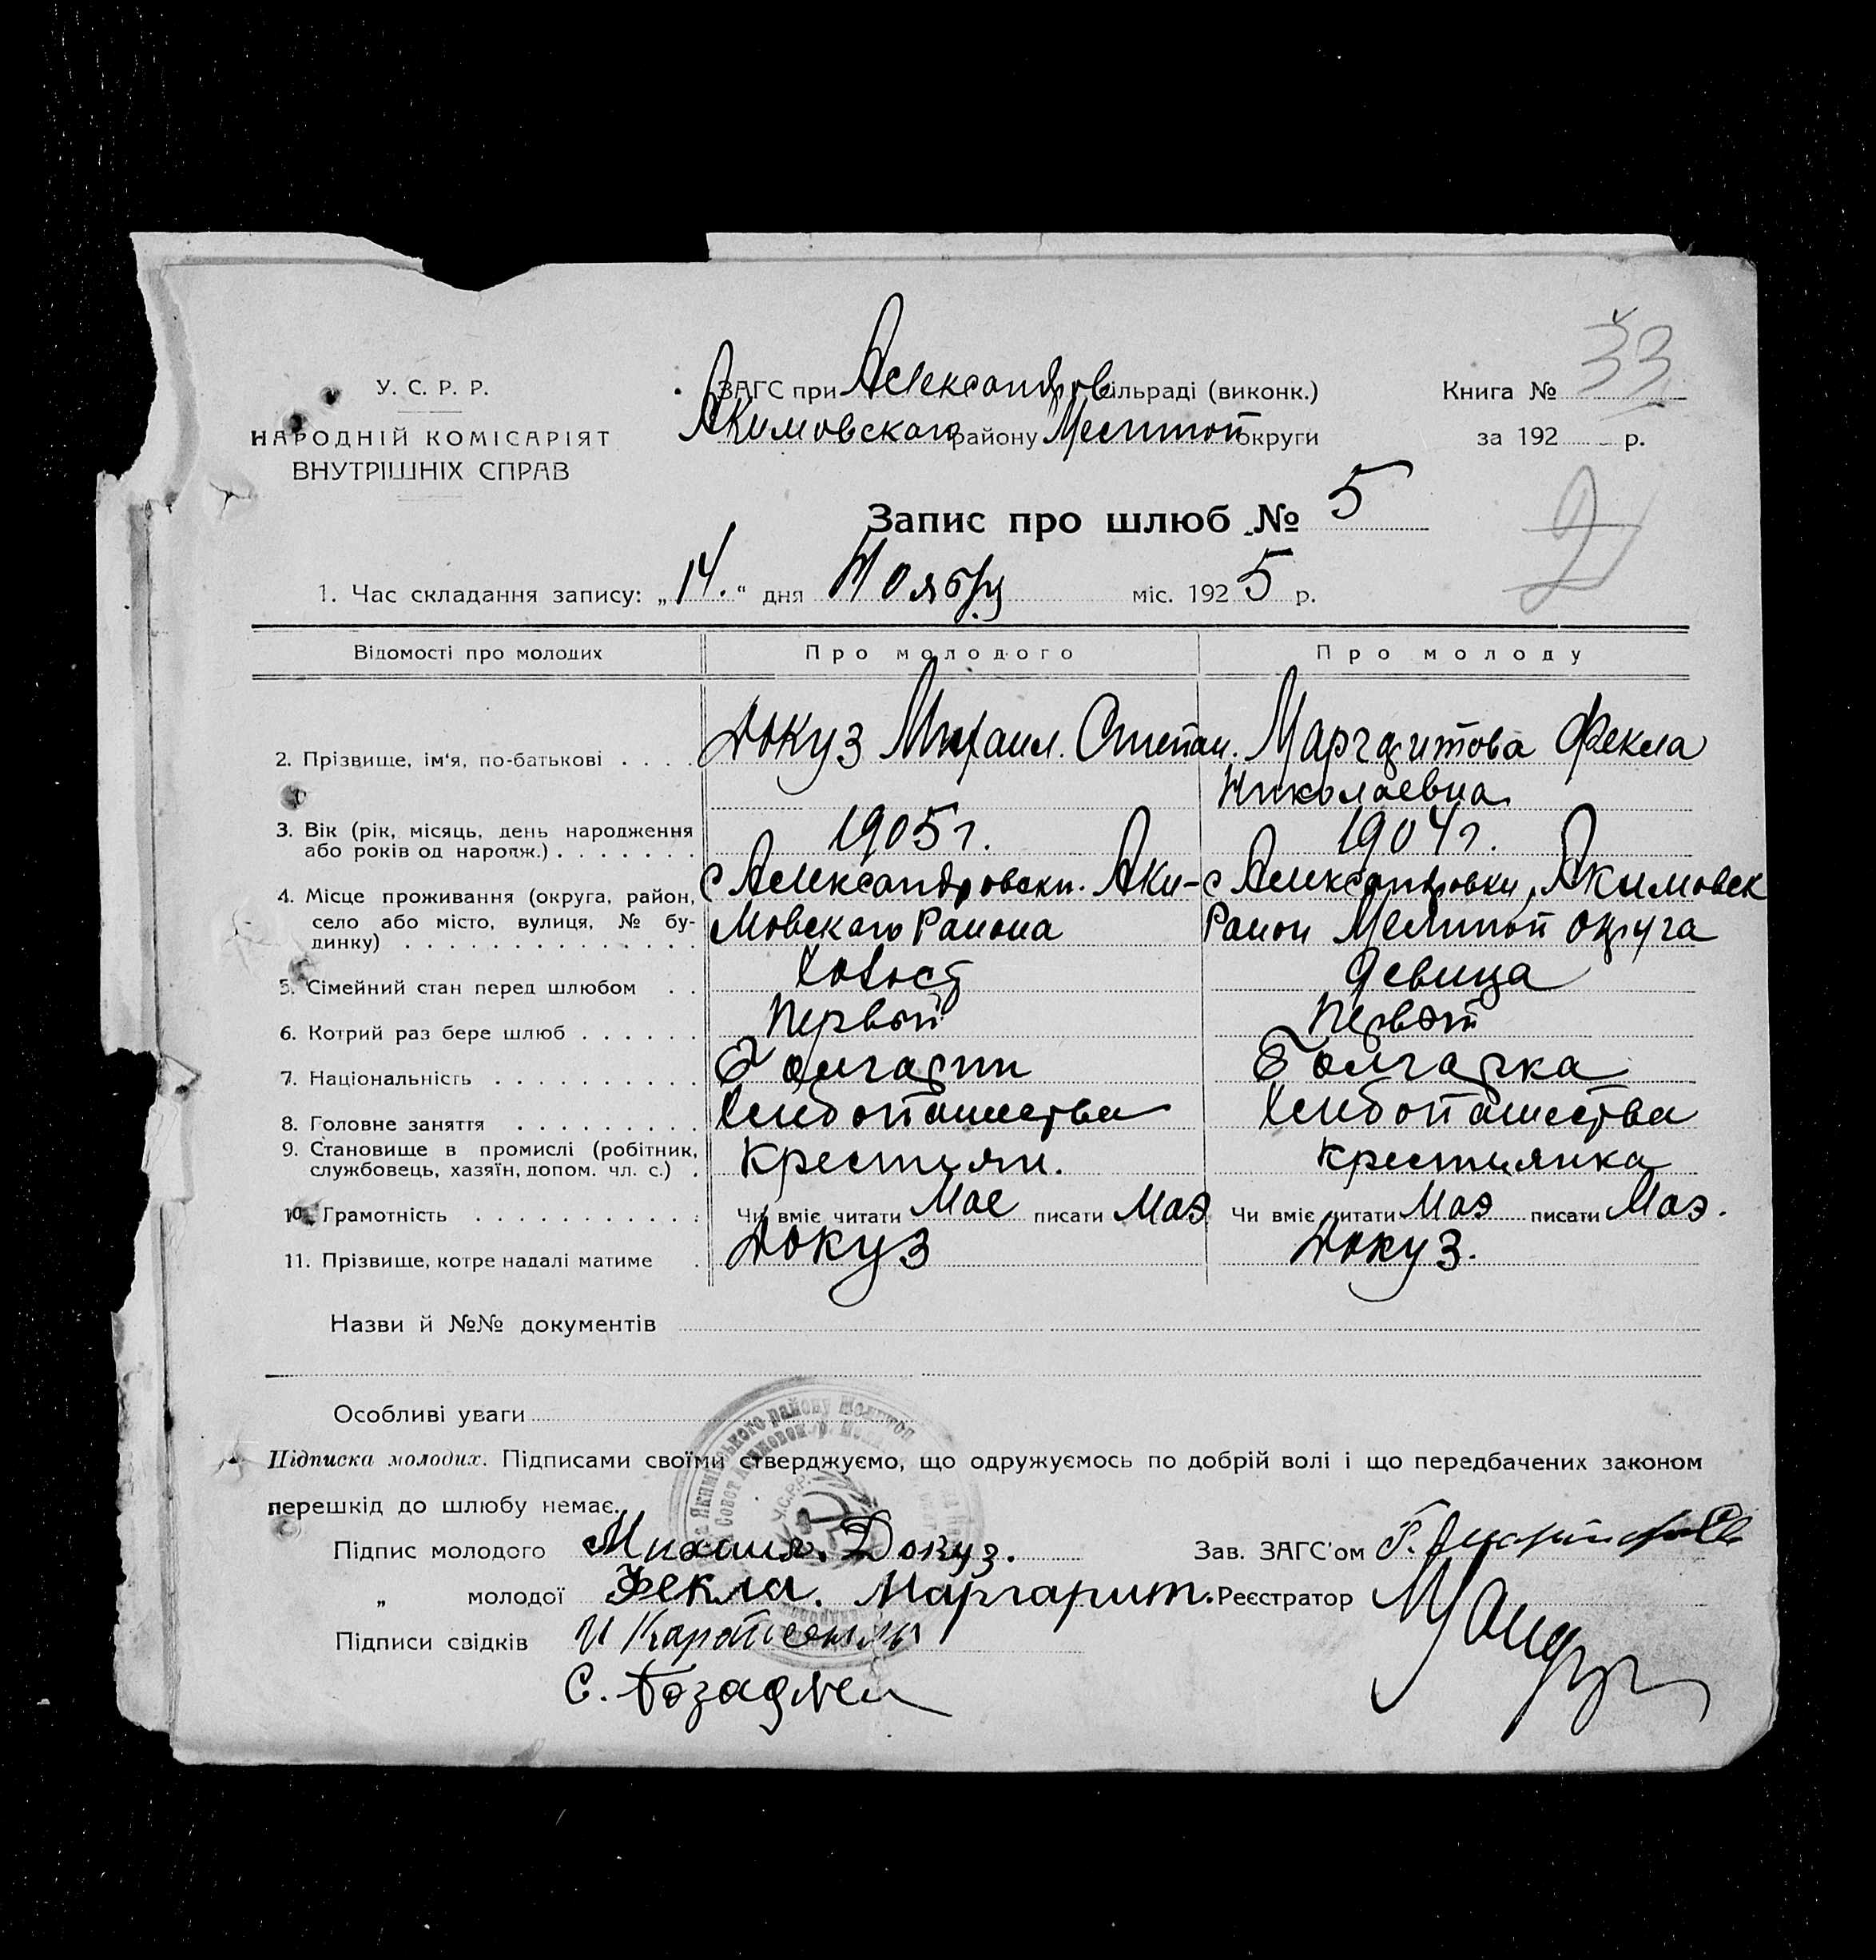 У. С. Р. Р.
НАРОДНІЙ КОМІСАРІЯТ
ВНУТРІШНІХ СПРАВ
ЗАГС при Александров сільраді (виконк.)
Акимовского району Мелитоп округи
Книга № 33
за 192 р.
Запис про шлюб № 5
2
1. Час складання запису: „14.“ дня Ноября міс. 1925 р.
Відомості про молодих Про молодого Про молоду
2. Прізвище, ім'я, по-батькові . . . . Докуз Михаил. Степан. Маргаритова Фекла
Николаевна
3. Вік (рік, місяць, день народження 1905 г. 1904 г.
або років од народж.) . . . . . . .
4. Місце проживання (округа, район, с Александровки. Аки- с Александровки, Акимовск
село або місто, вулиця, № бу- мовского Района Район Мелитоп округа
динку) . . . . . . . . . . . . . .
5. Сімейний стан перед шлюбом . . Холост девица
6. Котрий раз бере шлюб . . . . . . Первый Первый
7. Національність . . . . . . . . . . Болгарин Болгарка
8. Головне заняття . . . . . . . . . Хлебопашества Хлебопашества
9. Становище в промислі (робітник, Крестьян. крестьянка
службовець, хазяїн, допом. чл. с.) .
10. Грамотність . . . . . . . . . . . Чи вміє читати Мае писати Маэ Чи вміє читати Маэ писати Маэ.
11. Прізвище, котре надалі матиме . Докуз Докуз.
Назви й №№ документів
Особливі уваги
Підписка молодих. Підписами своїми стверджуємо, що одружуємось по добрій волі і що передбачених законом
перешкід до шлюбу немає.
Підпис молодого Михаил. Докуз. Зав. ЗАГС'ом
„ молодої Фекла. Маргарит. Реєстратор
Підписи свідків И
С.